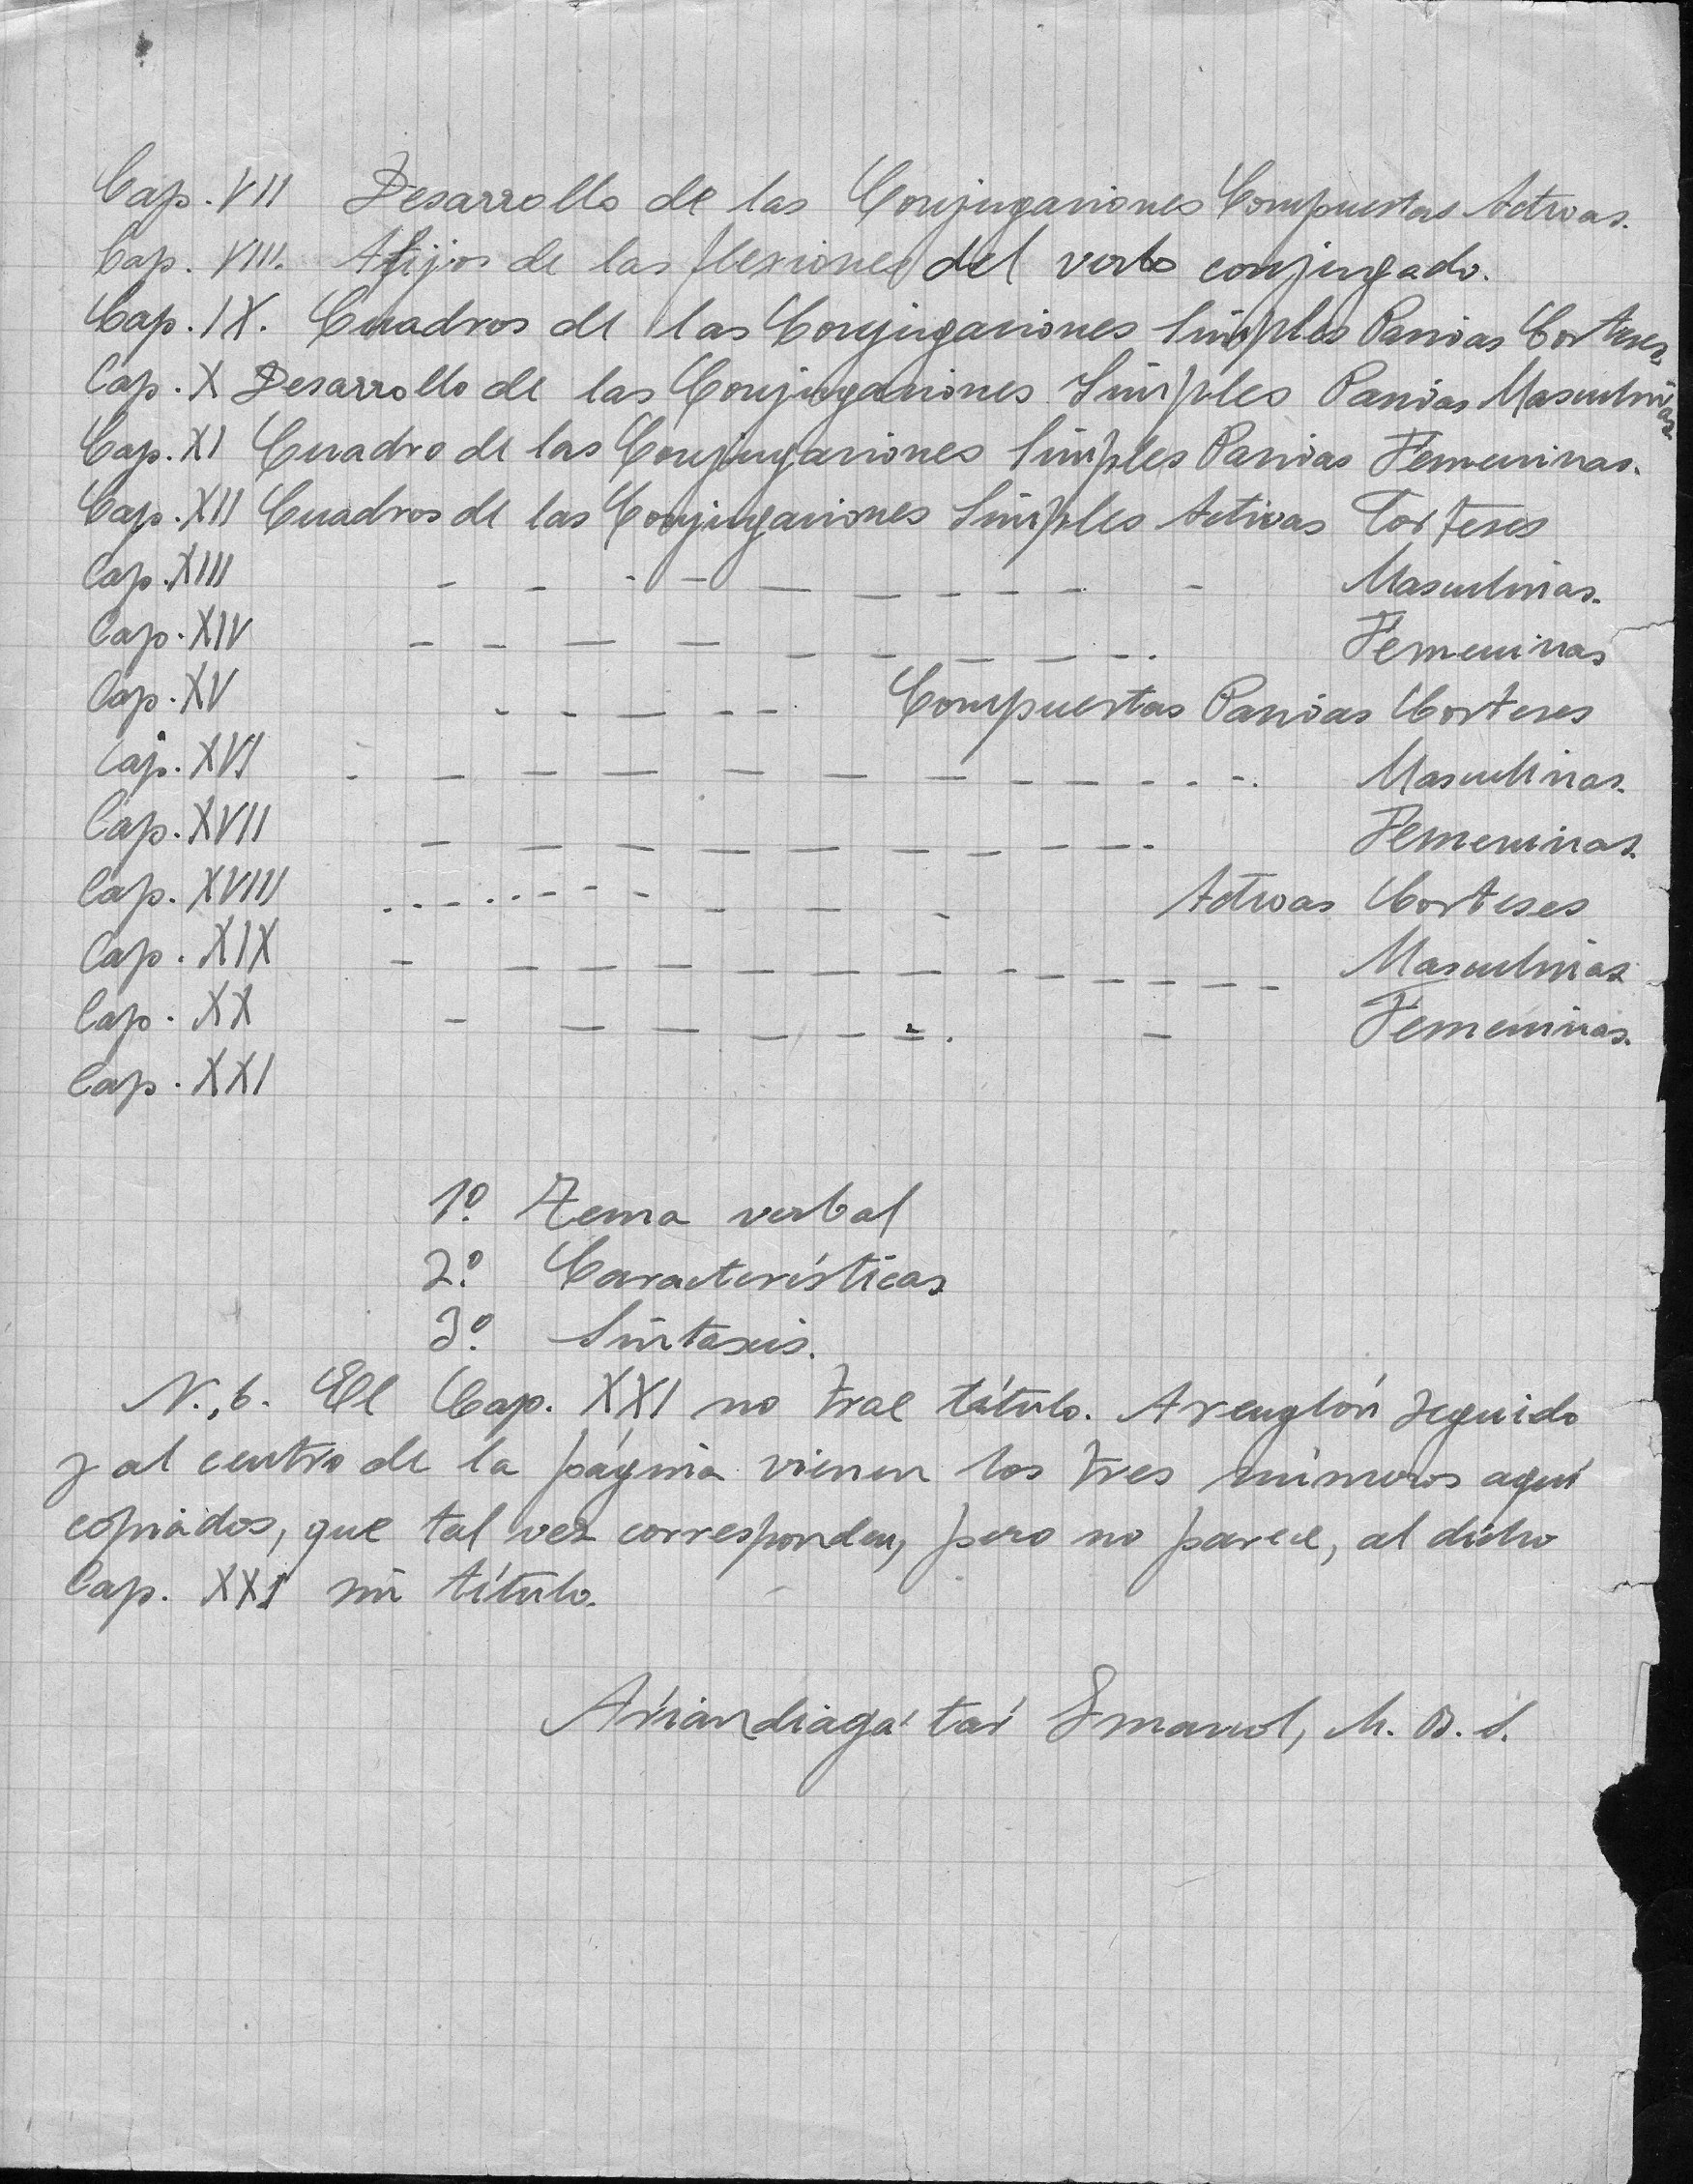 Cap. VII Desarrollo de las Conjugaciones Compuestas Activas.
Cap. VIII. Afijos de las flexiones del verbo conjugado.
Cap. IX. Cuadros de las Conjugaciones Simples Pasivas Corteses
Cap. X Desarrollo de las Conjugaciones Simples Pasivas Masculinas
Cap. XI Cuadro de las Conjugaciones Simples Pasivas Femeninas.
Cap. XII Cuadros de las Conjugaciones Simples Activas Corteses
Cap. XIII - - - - - - - - - - Masculinas.
Cap. XIV - - - - - - - - - Femeninas
Cap. XV - - - - - Compuestas Pasivas Corteses
Cap. XVI - - - - - - - - - - - - - Masculinas.
Cap. XVII - - - - - - - - - - Femeninas.
Cap. XVIII - - - - - - - - - - - - Activas Corteses
Cap. XIX - - - - - - - - - - - - - Masculinas
Cap. XX - - - - - - - - Femeninas.
Cap. XXI
1º. Tema verbal
2º. Características
3º. Sintaxis.
N., b. El Cap. XXI no trae título. A renglón seguido
y al centro de la página vienen los tres números aquí
copiados, que tal vez corresponden, pero no parece, al dicho
Cap. XXI sin título.
Ariandiaga'tar Imanol, M. B. S.